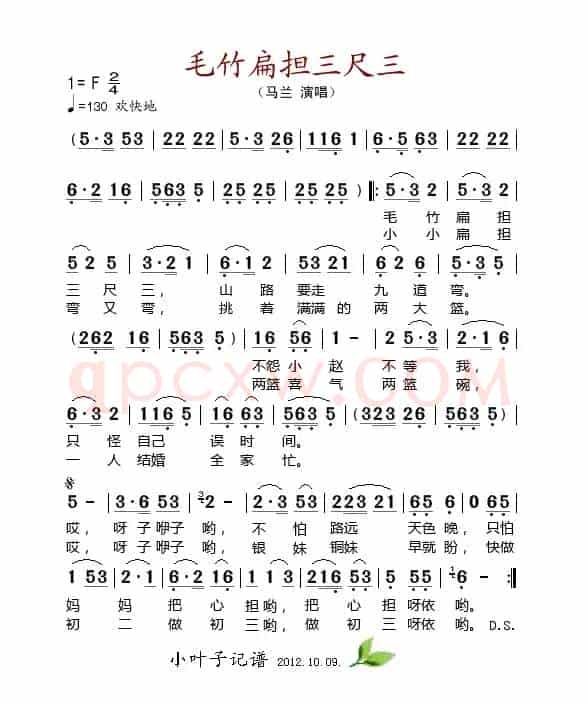 毛竹扁担三尺三
（马兰 演唱）
1= F 2/4
♩=130 欢快地
(5·3 53 | 22 22 | 5·3 26 | 116 1 | 6·5 63 | 22 22 |
6·2 16 | 563 5 | 25 25 | 25 25 ) ‖: 5·3 2 | 5·3 2 |
毛 竹 扁 担
小 小 扁 担
5 2 5 | 3·2 1 | 6·2 1 6 | 53 21 | 6·2 | 5·3 5 |
三 尺 三， 山 路 要走 九 道 弯。
弯 又 弯， 挑 着 满满 的 两 大 篮。
(262 16 | 563 5 ) | 16 56 | 1 - | 2 5 3 | 2·1 6 |
不怨 小 赵 不 等 我，
两篮 喜 气 两 篮 碗，
qpcxw.COM
6·3 2 | 116 5 | 16 63 | 563 5 | (323 26 | 563 5 ) |
只 怪 自己 误 时 间。
一 人 结婚 全 家 忙。
5 - | 3·6 53 | 2 - | 2·3 53 | 223 21 | 65 6 | 0 65 |
哎， 呀 子 咿子 哟， 不 怕 路远 天色 晚， 只怕
哎， 呀 子 咿子 哟， 银 妹 铜妹 早就 盼， 快做
1 53 | 2 1 | 6·2 16 | 1 3 2 | 216 53 | 5 65 | 6 - :‖
妈 妈 把 心 担 哟， 把 心 担 呀依 哟。
初 二 做 初 三 哟， 做 初 三 呀依 哟。 D.S.
小叶子记谱 2012.10.09.